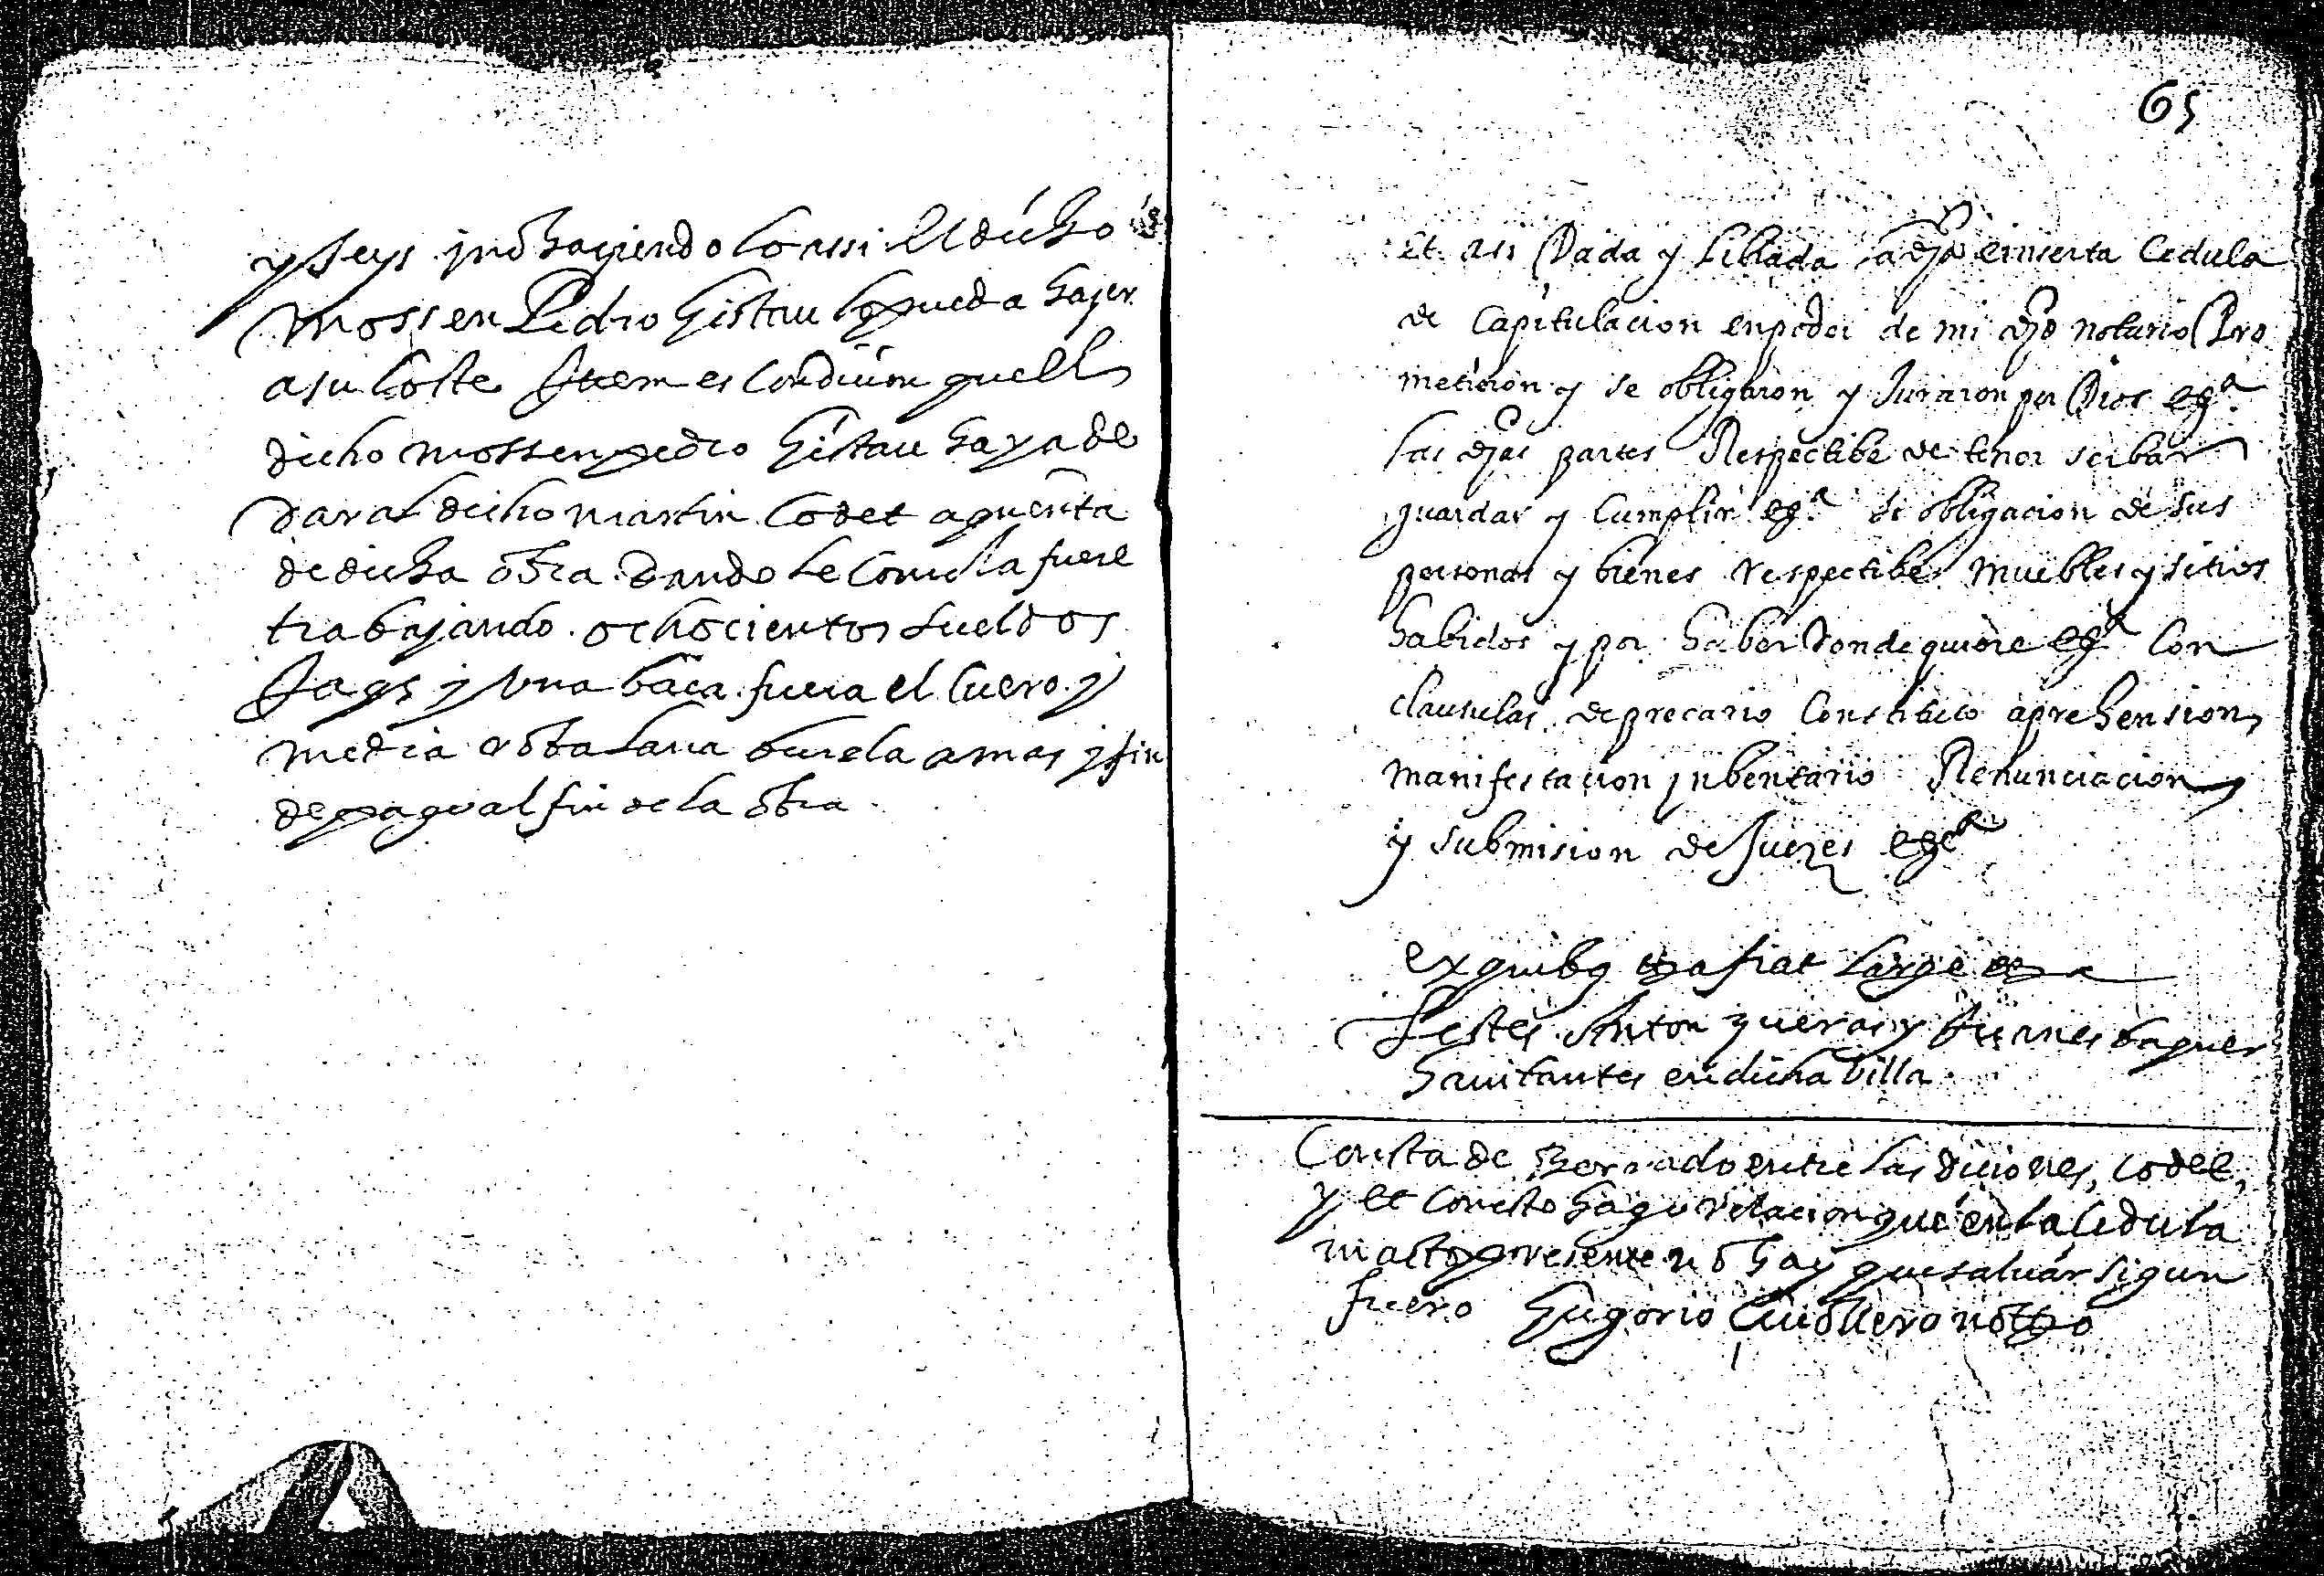 y seys y no haziendo lo assi el dicho
mossen Pedro Gistau lo pueda hazer
a su coste Item es condicion que el
dicho mossen pedro Gistau haya de
dar al dicho martin Codet a quenta
de dicha obra dando le como la fuere
trabajando ochocientos sueldos
Jaqs y una baca fuera el cuero y
media roba lana burela a mas y fin
de pago al fin de la obra
65
Et asi Dada y librada la dha e inserta Cedula
de Capitulacion en poder de mi dho notario Pro
metieron y se obligaron y Juraron por Dios etca
las dhas partes Respectibe de tener serbar
guardar y Cumplir etca so obligacion de sus
personas y bienes respectibe muebles y sitios
habidos y por haber donde quiere etca Con
clausulas de precario Constituto aprehension
manifestacion ynbentario Renunciacion
y submision de Juezes etca
ex quibus fiat large
Testes Anton y
havitantes en dicha villa
Consta de entre las diciones, codet,
y et con esto hago relacion que en la cedula
ni acto presente no hay que salvar sigun
fuero notto